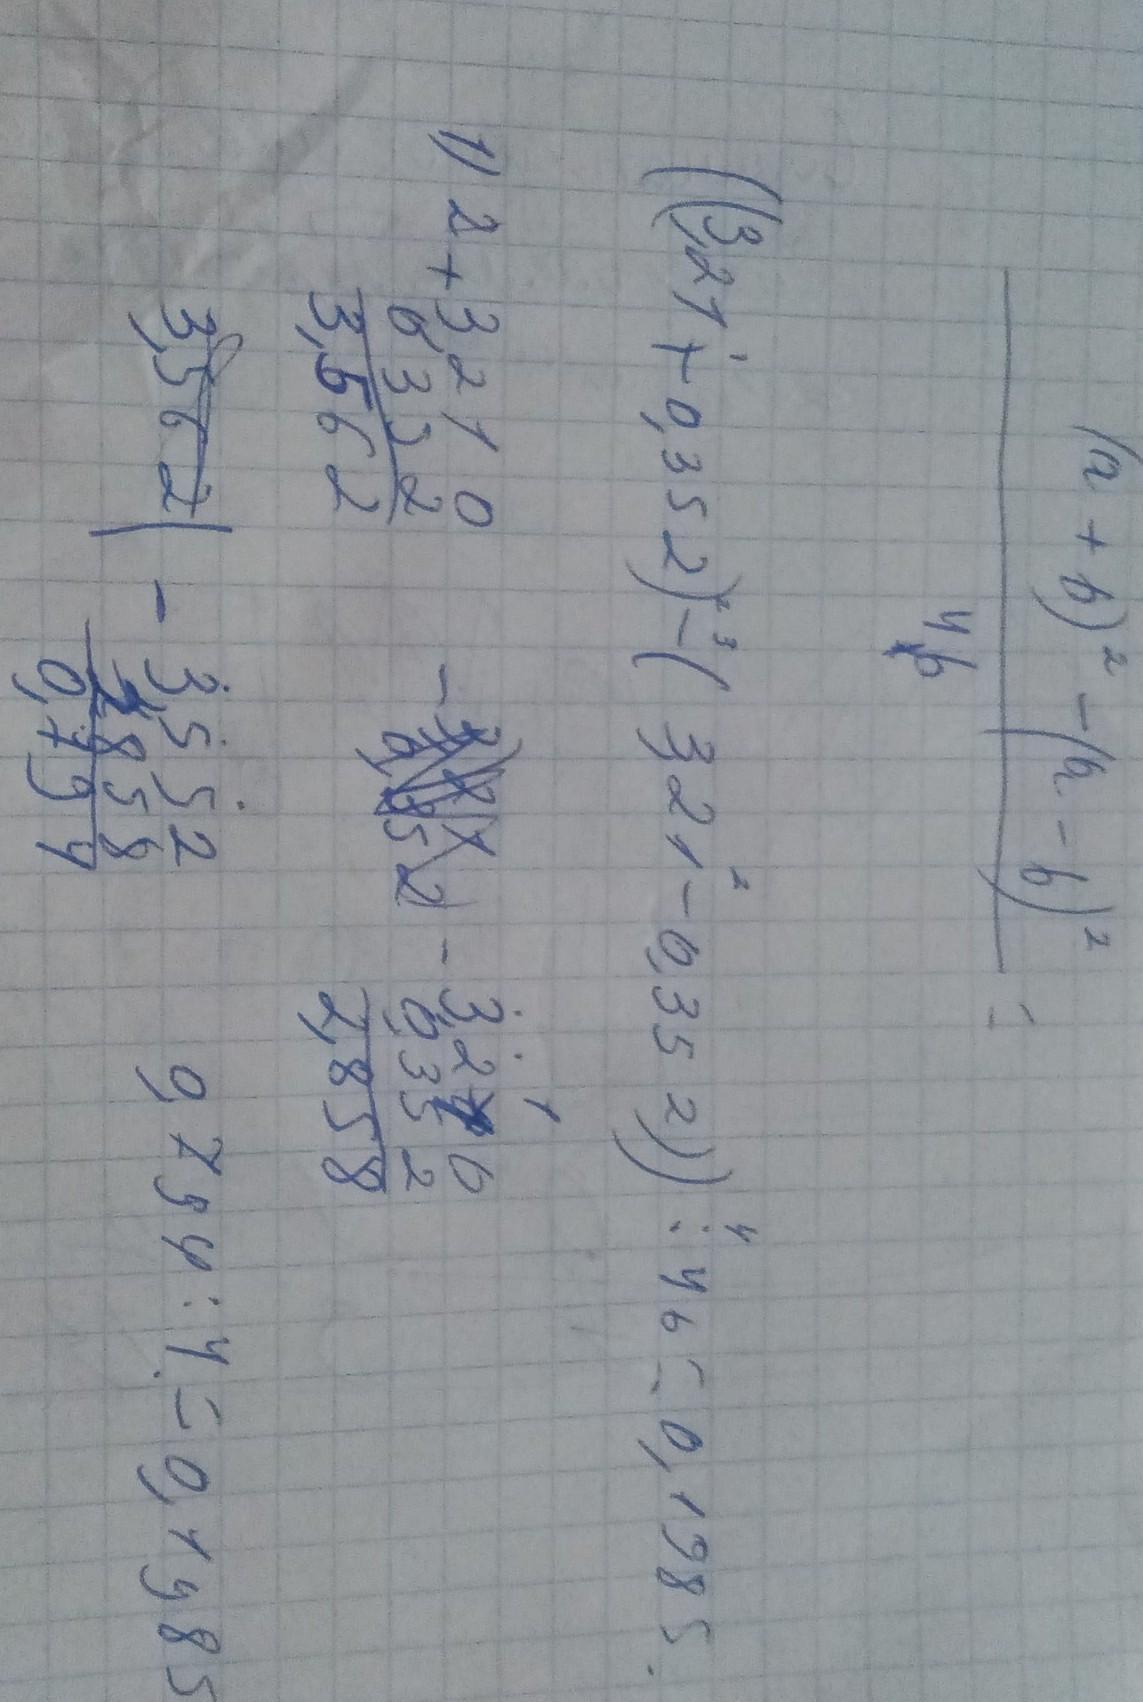 (a + b)² - (a - b)²
4b
=
((3,21 + 0,352) - (3,21 - 0,352)) : 4b = 0,1985.
1) 2 + 3,210
0,352
3,562
- 3,210
0,352
2,858
3,562
- 3,552
2,858
0,794
0,794 : 4 = 0,1985